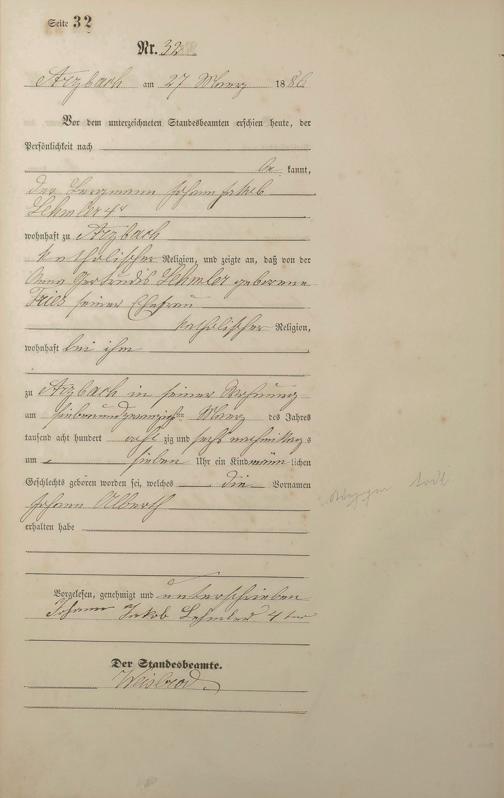 Seite 32
Nr. 32
Arzbach am 27 Maerz 1886
Vor dem unterzeichneten Standesbeamten erschien heute, der
Persönlichkeit nach
be kannt,
der Bergmann Johann Jakob
Lehmler 4r
wohnhaft zu Arzbach
katholischer Religion, und zeigte an, daß von der
Anna Gertrudis Lehmler geborene
Fries seiner Ehefrau
katholischer Religion,
wohnhaft bei ihm
zu Arzbach in seiner Wohnung
am siebenundzwanzigsten Maerz des Jahres
tausend acht hundert acht zig und sechs nachmittags
um sieben Uhr ein Kind männ lichen
Geschlechts geboren worden sei, welches die Vornamen
Johann Albert
erhalten habe
Vorgelesen, genehmigt und unterschrieben
Johann Jakob Lehmler 4ter
Der Standesbeamte.
Weisbrod